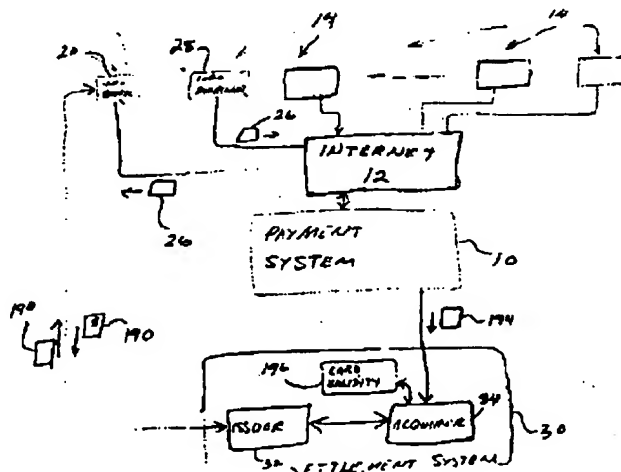 20
28
14
14
26
INTERNET
12
26
PAYMENT
SYSTEM
10
190
190
194
196
CARD
VALIDITY
ISSUER
ACQUIRER
34
30
32
SETTLEMENT SYSTEM